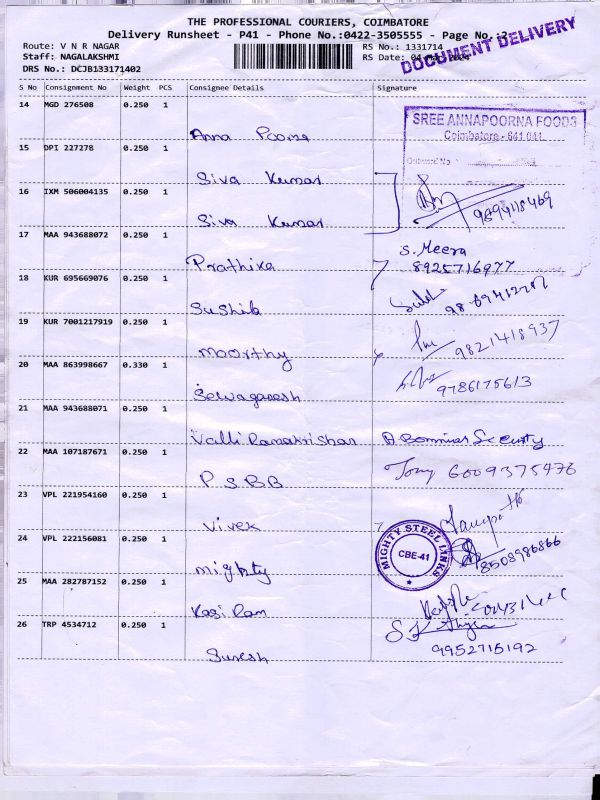 THE PROFESSIONAL COURIERS, COIMBATORE
Delivery Runsheet - P41 - Phone No.:0422-3505555 - Page No.:2
Route: V N R NAGAR
RS No.: 1331714
Staff: NAGALAKSHMI
RS Date: 04
2024
DRS No.: DCJB133171402
DOCUMENT DELIVERY
S No Consignment No Weight PCS Consignee Details Signature
14 MGD 276508 0.250 1
Anna Poorna
SREE ANNAPOORNA FOODS
Coimbatore - 641 041.
15 DPI 227278 0.250 1
Siva Kumar
Outward No
16 IXM 506004135 0.250 1
Siva Kumar
9894118469
17 MAA 943688072 0.250 1
Prathika
S. Meera
8925716977
18 KUR 695669076 0.250 1
Sushib
19 KUR 7001217919 0.250 1
Moorthy
9821418937
20 MAA 863998667 0.330 1
Selvaganesh
9786175613
21 MAA 943688071 0.250 1
Valli Ramakrishan
Security
22 MAA 107187671 0.250 1
P S B B
Tomy 6009375476
23 VPL 221954160 0.250 1
Vivek
24 VPL 222156081 0.250 1
Mighty
MIGHTY STEEL LINKS
CBE-41
8508986866
25 MAA 282787152 0.250 1
Kasi Ram
26 TRP 4534712 0.250 1
Suresh
9952715192